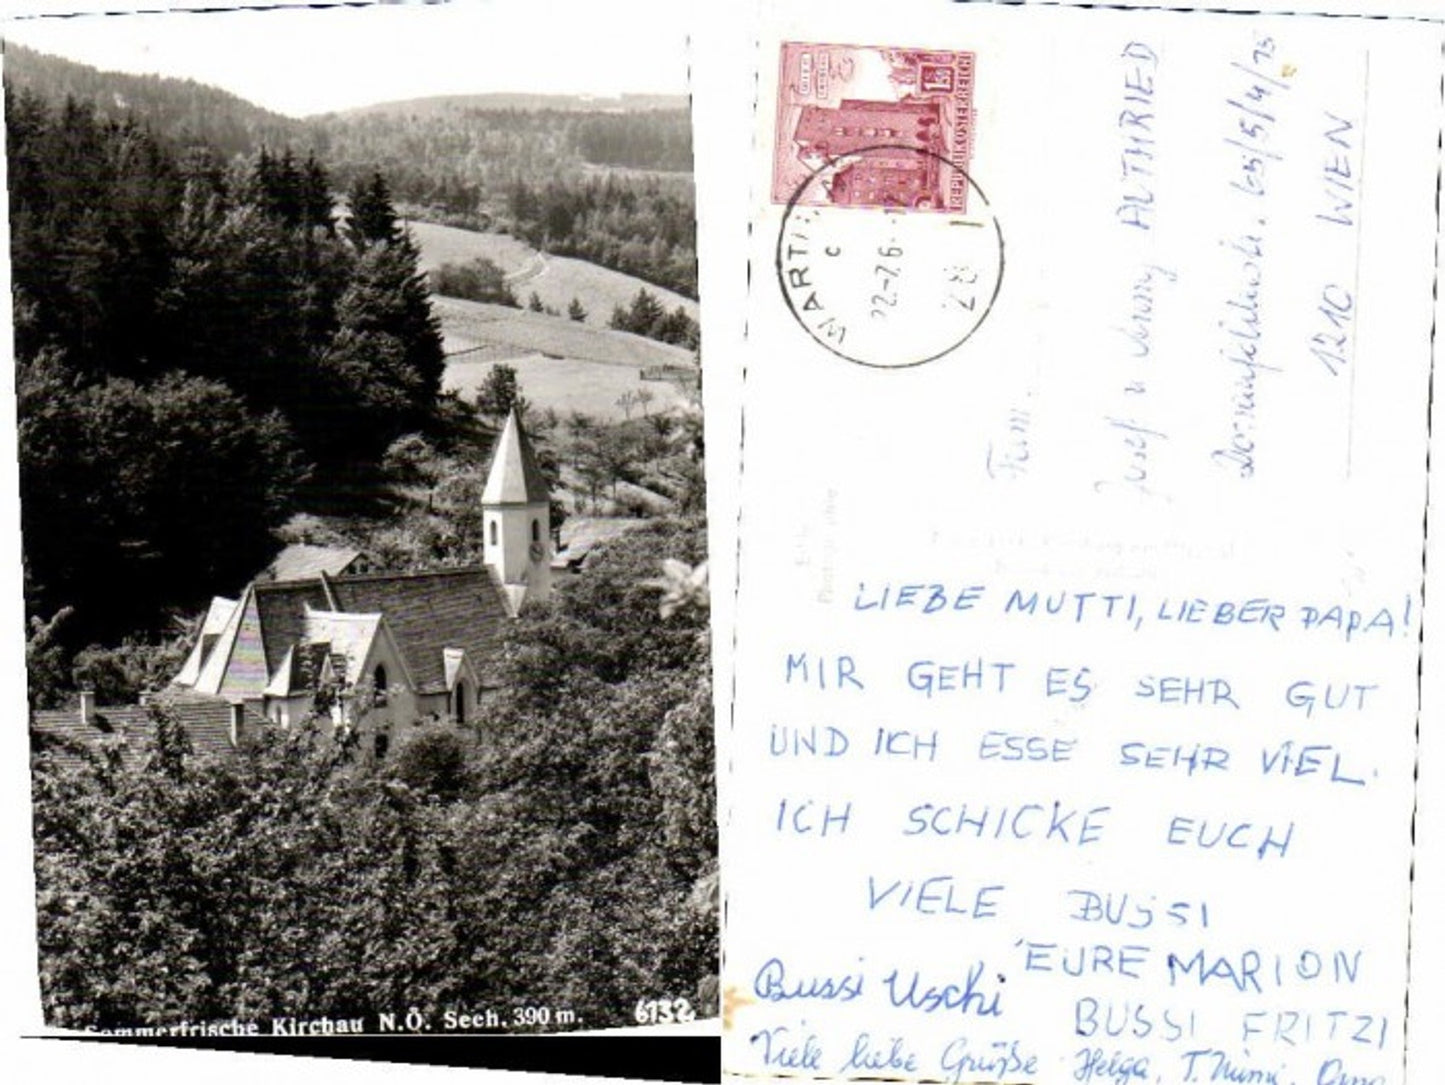 Sommerfrische Kirchau N.Ö. Seeh. 390 m.
6132
1.50
REPUBLIK ÖSTERREICH
WARTH
c
22.-7.6
Fam.
Josef u AUTHRIED
65/5/4/
1210 WIEN
LIEBE MUTTI, LIEBER PAPA!
MIR GEHT ES SEHR GUT
UND ICH ESSE SEHR VIEL.
ICH SCHICKE EUCH
VIELE BUSSI
EURE MARION
Bussi Uschi
BUSSI FRITZI
Viele liebe Grüße Helga, T. Mimi,